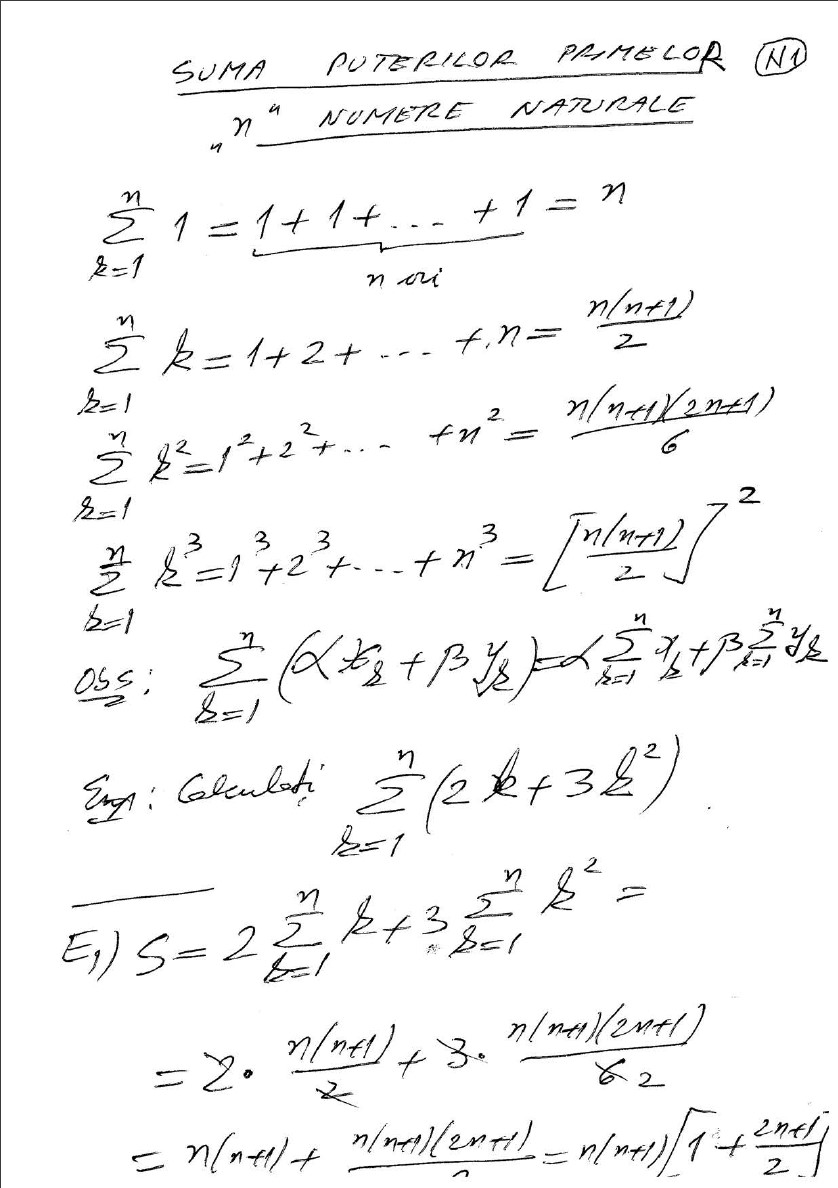 SUMA PUTERILOR PRIMELOR N1
„n" NUMERE NATURALE
∑_{k=1}^{n} 1 = 1+1+... +1 = n
n ori
∑_{k=1}^{n} k = 1+2+ ... +n = n(n+1)/2
∑_{k=1}^{n} k² = 1²+2²+... +n² = n(n+1)(2n+1)/6
∑_{k=1}^{n} k³ = 1³+2³+...+n³ = [n(n+1)/2]²
Obs: ∑_{k=1}^{n} (αx_k + βy_k) = α ∑_{k=1}^{n} x_k + β ∑_{k=1}^{n} y_k
Calculați ∑_{k=1}^{n} (2k+3k²)
E₁) S = 2 ∑_{k=1}^{n} k + 3 ∑_{k=1}^{n} k² =
= 2· n(n+1)/2 + 3· n(n+1)(2n+1)/6 2
= n(n+1) + n(n+1)(2n+1)/2 = n(n+1)[1 + (2n+1)/2]